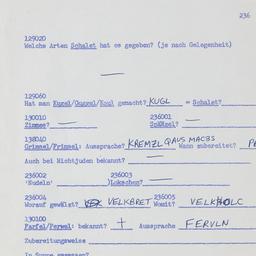 236
129020
Welche Arten Schalet hat es gegeben? (je nach Gelegenheit)
—
129060
Hat man Kugel/Gugel/Koul gemacht? KUGL = Schalet?
130010 236001
Zimmes? — Spätzel? —
138040
Grimsel/Frimsel: Aussprache? KREMZL Wann zubereitet?
Auch bei Nichtjuden bekannt? —
236002 236003
'Nudeln' )Lokschen? —
236004 236005
Worauf gewälzt? VELKBRET Womit? VELKHOLC
130100
Farfel/Ferwel: bekannt? + Aussprache FERVLN
Zubereitungsweise
In Suppe gegessen?